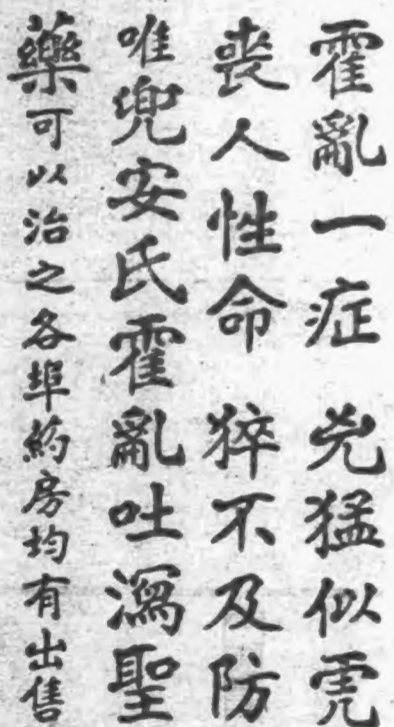 霍亂一症 兇猛似虎
喪人性命 猝不及防
唯兜安氏霍亂吐瀉聖
藥可以治之各埠約房均有出售